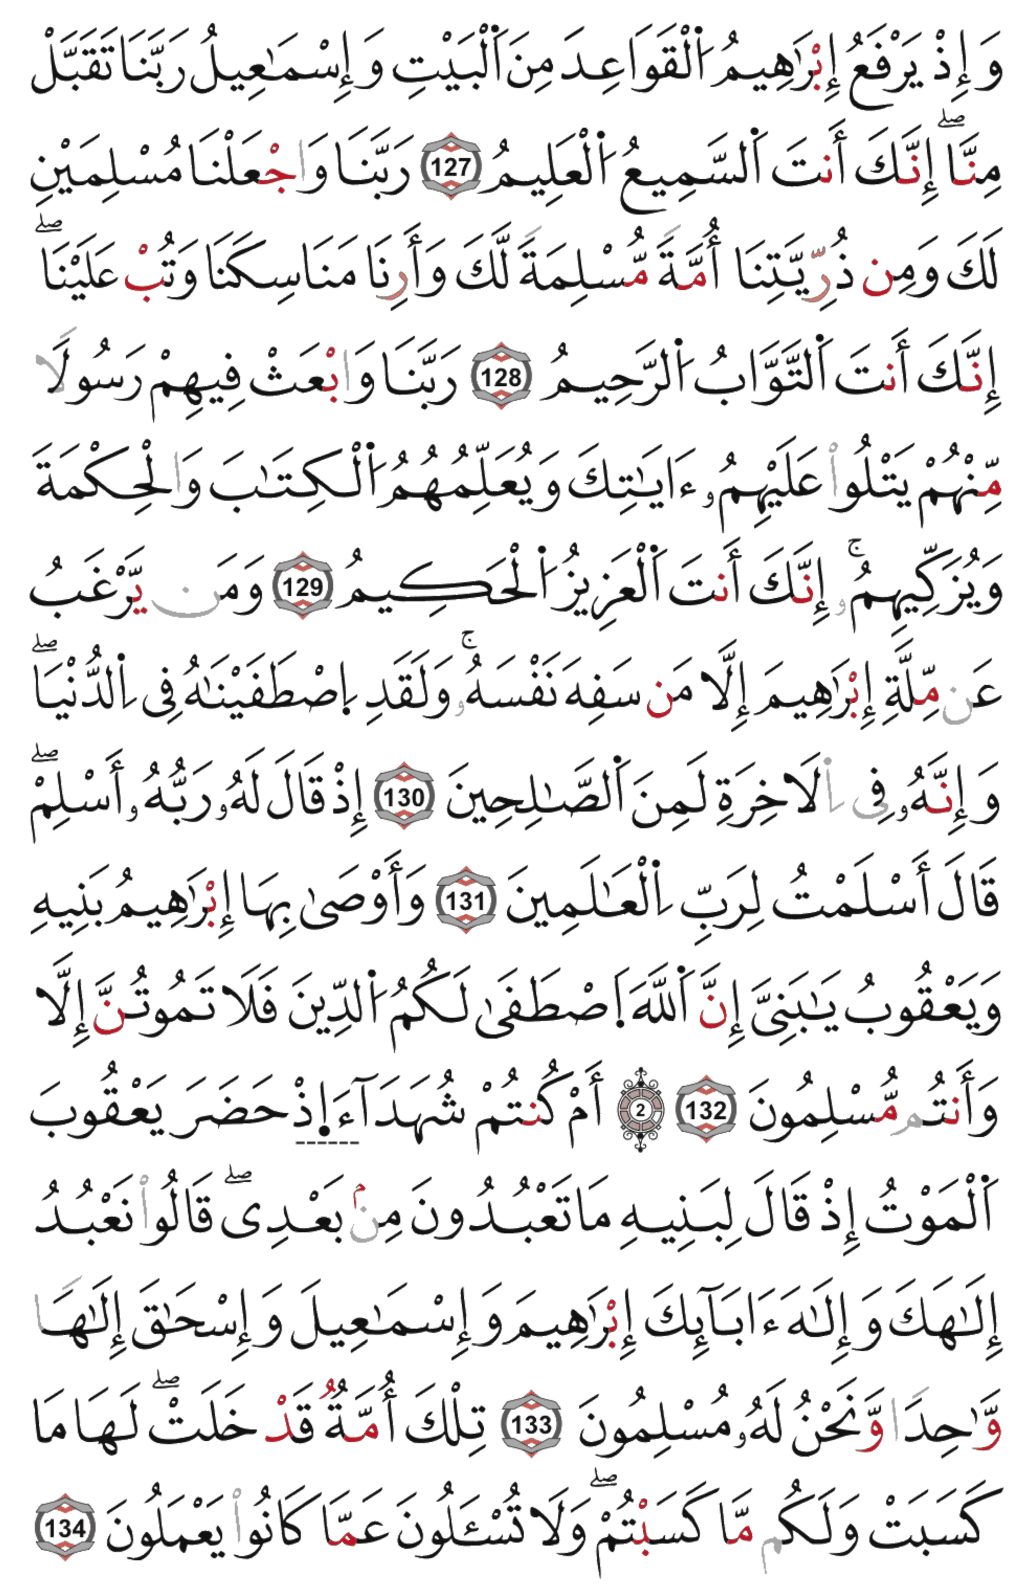 وَإِذْ يَرْفَعُ إِبْرَٰهِيمُ اُ۬لْقَوَاعِدَ مِنَ اَ۬لْبَيْتِ وَإِسْمَٰعِيلُ رَبَّنَا تَقَبَّلْ
مِنَّاۖ إِنَّكَ أَنتَ اَ۬لسَّمِيعُ اُ۬لْعَلِيمُ 127 رَبَّنَا وَاجْعَلْنَا مُسْلِمَيْنِ
لَكَ وَمِن ذُرِّيَّتِنَا أُمَّةً مُّسْلِمَةً لَّكَ وَأَرِنَا مَنَاسِكَنَا وَتُبْ عَلَيْنَاۖ
إِنَّكَ أَنتَ اَ۬لتَّوَّابُ اُ۬لرَّحِيمُ 128 رَبَّنَا وَابْعَثْ فِيهِمْ رَسُولاً
مِّنْهُمْ يَتْلُواْ عَلَيْهِمُۥ ءَايَٰتِكَ وَيُعَلِّمُهُمُ اُ۬لْكِتَٰبَ وَالْحِكْمَةَ
وَيُزَكِّيهِمُۥۚ إِنَّكَ أَنتَ اَ۬لْعَزِيزُ اُ۬لْحَكِيمُ 129 وَمَن يَّرْغَبُ
عَن مِّلَّةِ إِبْرَٰهِيمَ إِلَّا مَن سَفِهَ نَفْسَهُۥۚ وَلَقَدِ اِ۪صْطَفَيْنَٰهُ فِى اِ۬لدُّنْيَاۖ
وَإِنَّهُۥ فِى اِ۬لَاخِرَةِ لَمِنَ اَ۬لصَّٰلِحِينَ 130 إِذْ قَالَ لَهُۥ رَبُّهُۥ أَسْلِمْۖ
قَالَ أَسْلَمْتُ لِرَبِّ اِ۬لْعَٰلَمِينَ 131 وَأَوْصَىٰ بِهَا إِبْرَٰهِيمُ بَنِيهِ
وَيَعْقُوبُ يَٰبَنِىَّ إِنَّ اَ۬للَّهَ اَ۪صْطَفَىٰ لَكُمُ اُ۬لدِّينَ فَلَا تَمُوتُنَّ إِلَّا
وَأَنتُم مُّسْلِمُونَ 132 2 أَمْ كُنتُمْ شُهَدَآءَ اِ۪ذْ حَضَرَ يَعْقُوبَ
اَ۬لْمَوْتُ إِذْ قَالَ لِبَنِيهِ مَا تَعْبُدُونَ مِنۢ بَعْدِىۖ قَالُواْ نَعْبُدُ
إِلَٰهَكَ وَإِلَٰهَ ءَابَآئِكَ إِبْرَٰهِيمَ وَإِسْمَٰعِيلَ وَإِسْحَٰقَ إِلَٰهًا
وَٰحِدًا وَّنَحْنُ لَهُۥ مُسْلِمُونَ 133 تِلْكَ أُمَّةٌ قَدْ خَلَتْۖ لَهَا مَا
كَسَبَتْ وَلَكُم مَّا كَسَبْتُمْۖ وَلَا تُسْـَٔلُونَ عَمَّا كَانُواْ يَعْمَلُونَ 134